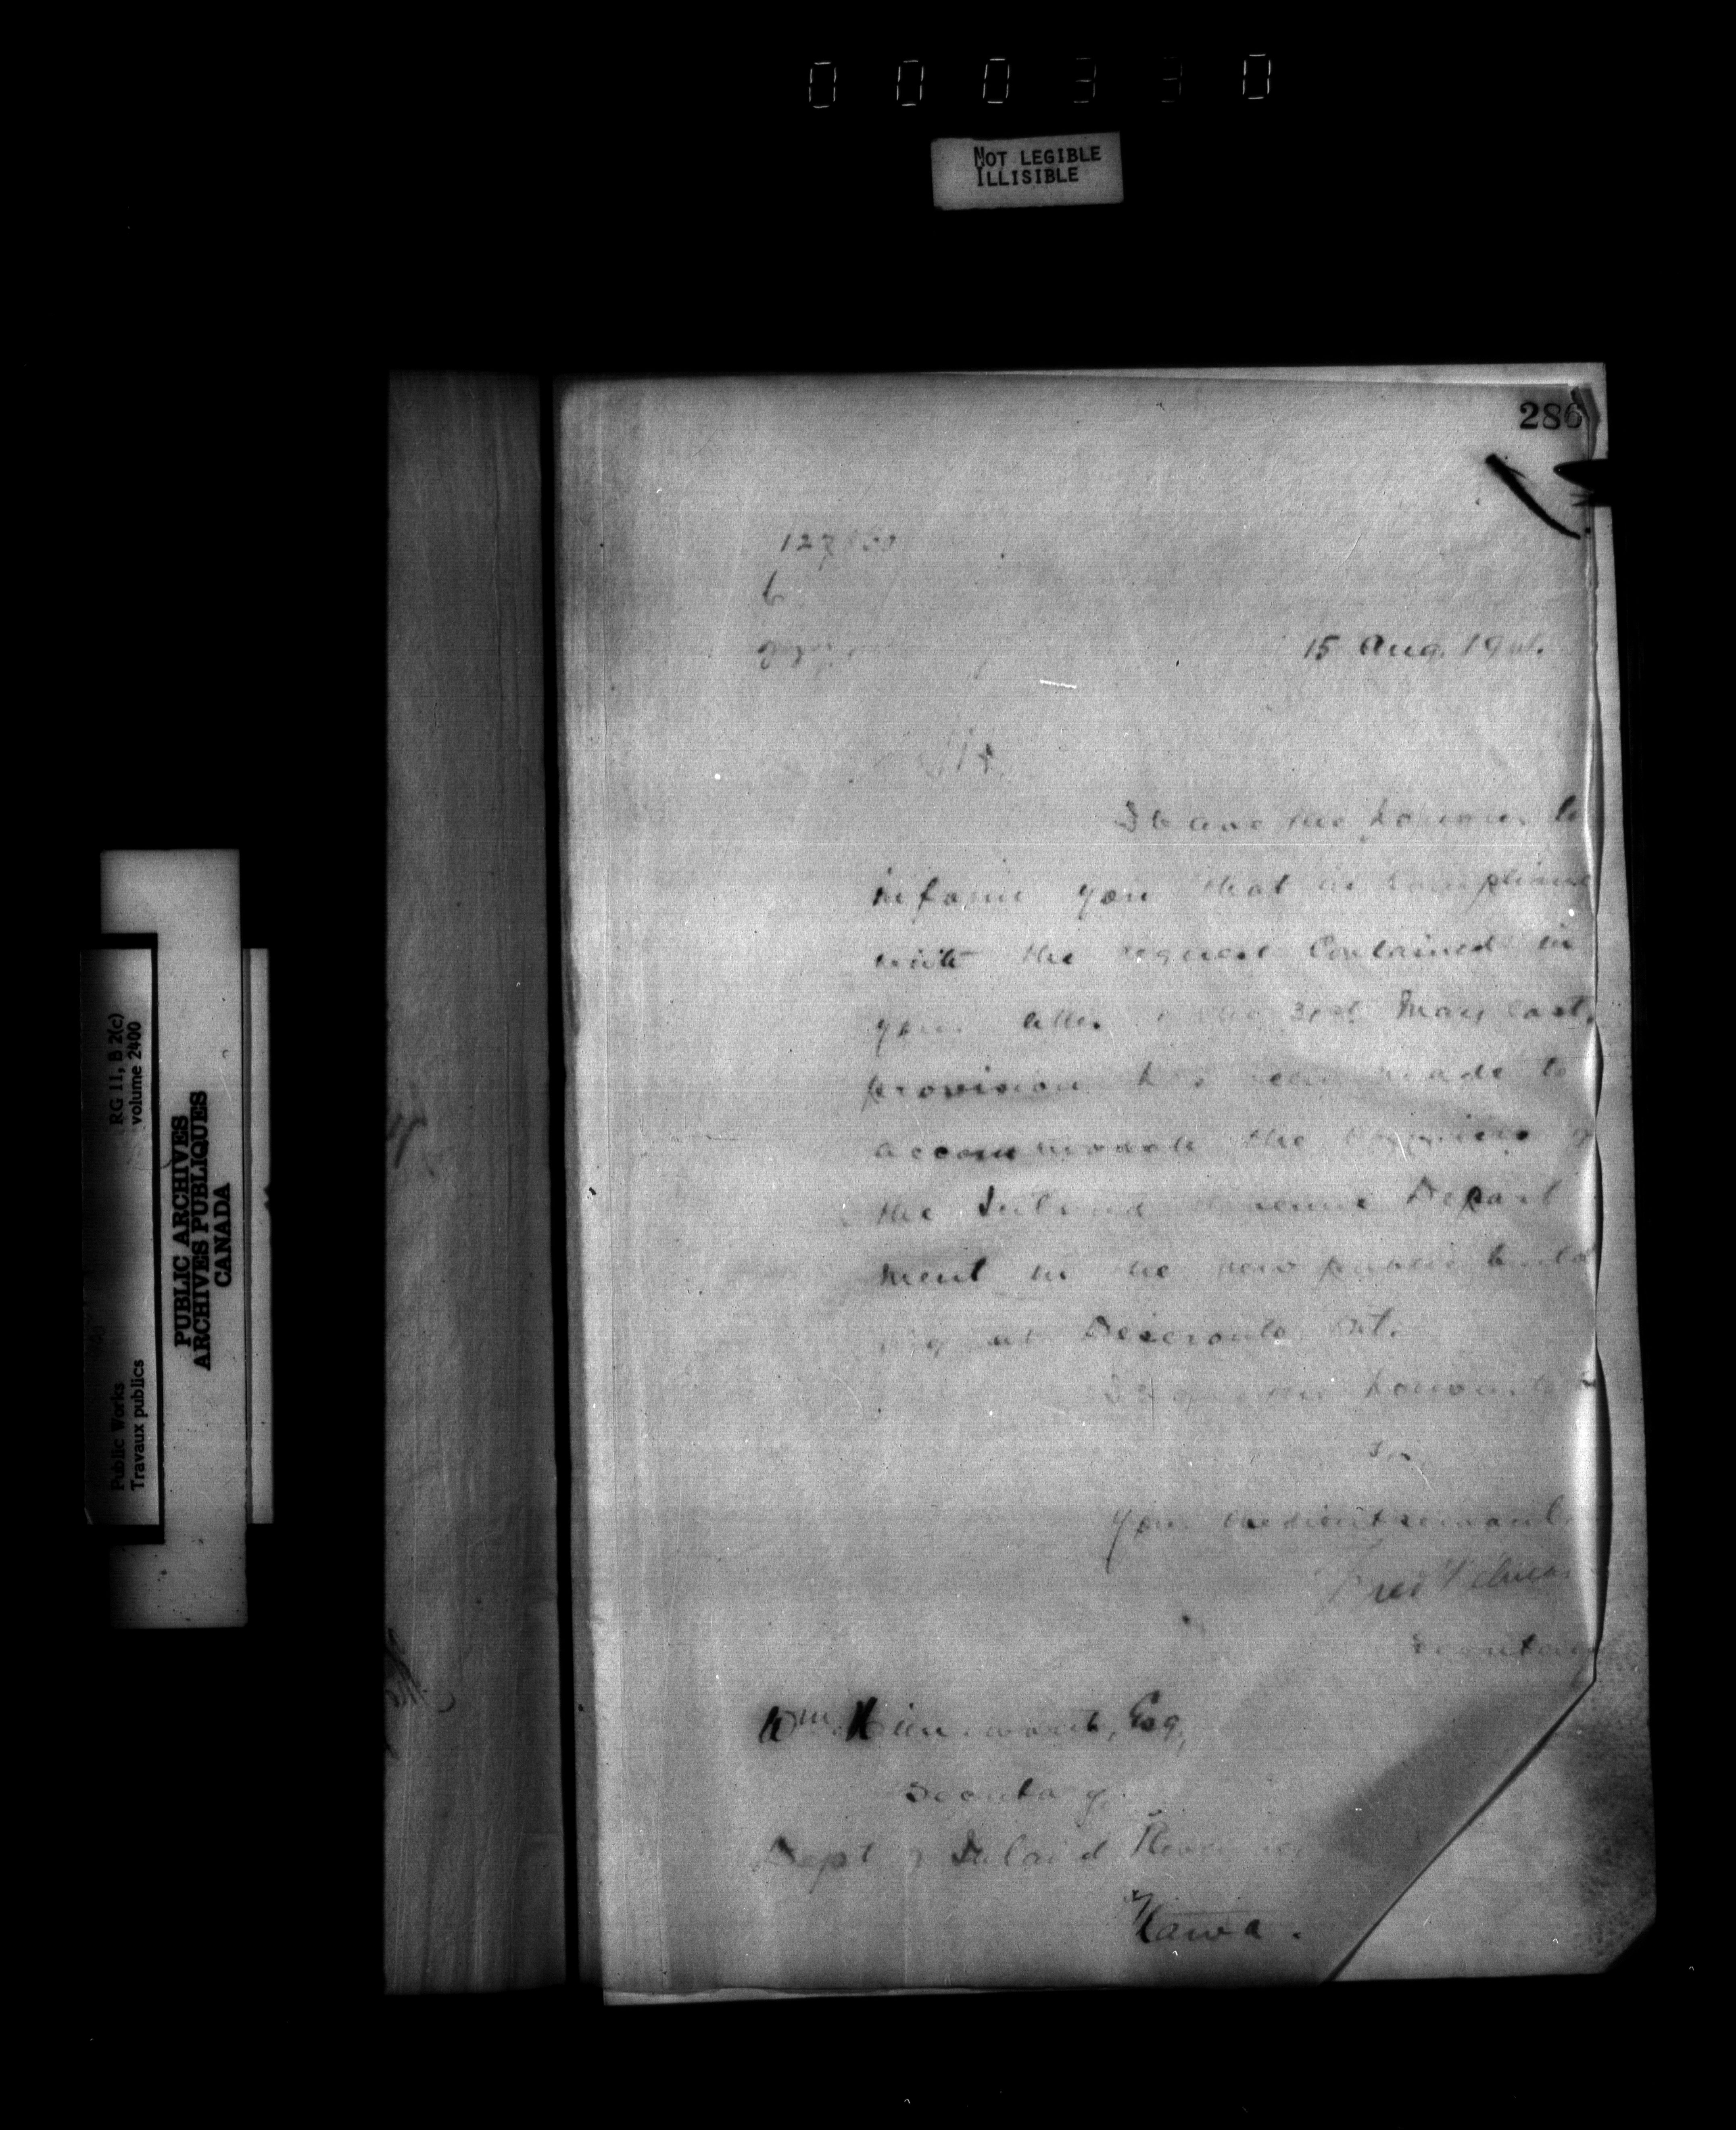 0 0 0 3 3 0
NOT LEGIBLE
ILLISIBLE
286
6
15 Aug. 19
Sir,
I have the honour to
inform you that in complianc
with the request Contained in
your letter the 3rd May last,
provision has been made to
accommodate the
the Inland Revenue Depart
ment in the new public build
ing at Deseronto, Ont.
I have the honour to
Sir
Your obedient servant,
Fred
Secretary
Wm Esq,
Secretary,
Dept of Inland Revenue
Ottawa.
RG 11, B 2(c)
volume 2400
PUBLIC ARCHIVES
ARCHIVES PUBLIQUES
CANADA
Public Works
Travaux publics